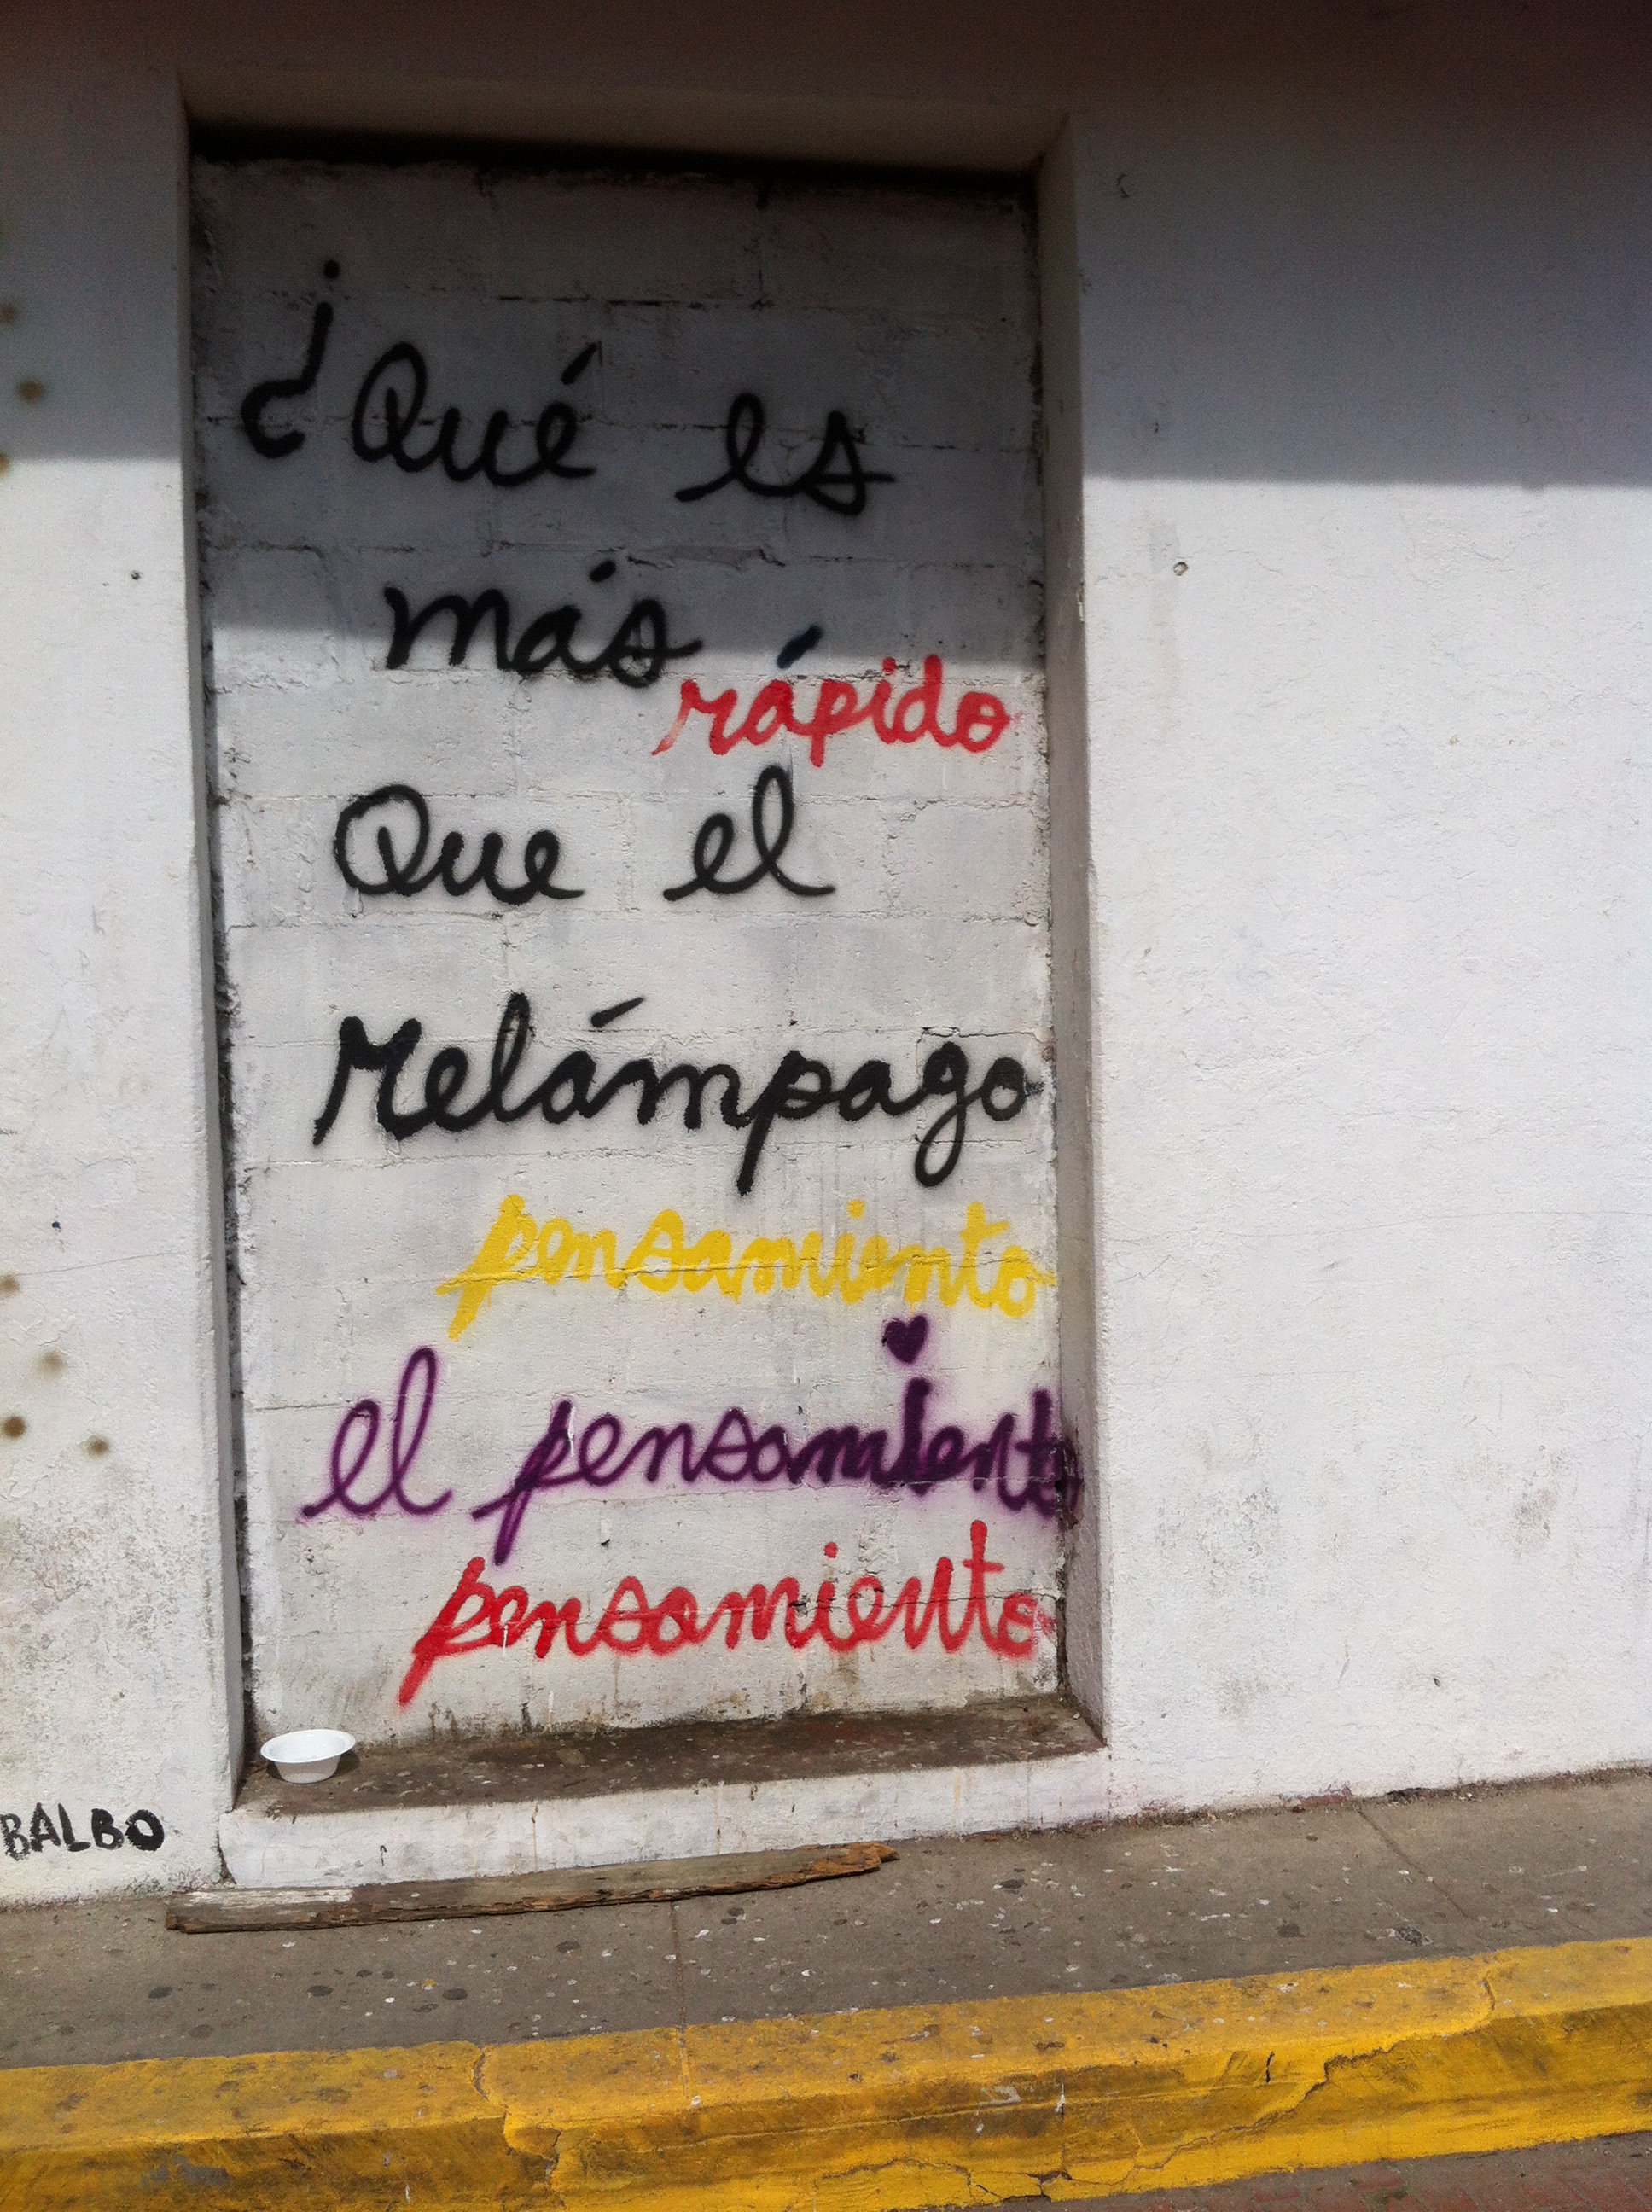 ¿Qué es
más
rápido
Que el
relámpago
pensamiento
el pensamiento
pensamiento
BALBO